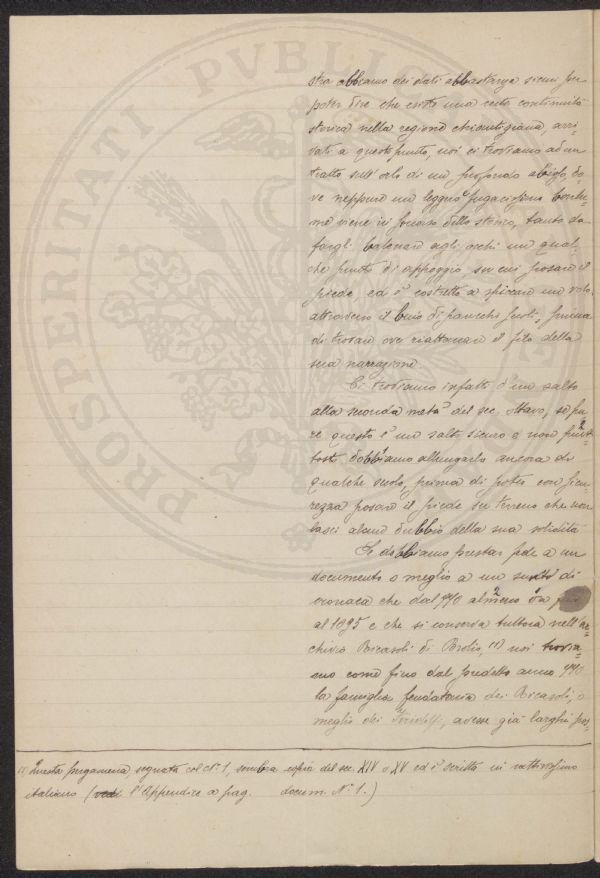 stra abbiamo dei dati abbastanza sicuri per
poter dire che esiste una certa continuità
storica nella regione chiantigiana, arri-
vati a questo punto, noi ci troviamo ad un
tratto sull'orlo di un profondo abisso, do-
ve neppure un leggero fugacissimo barlu-
me viene in soccorso dello storico, tanto da
fargli balenare agli occhi un qual-
che punto di appoggio, su cui posare il
piede ed è costretto a spiccare un volo
attraverso il buio di parecchi secoli, prima
di trovare ove riattaccare il filo della
sua narrazione.
Ci troviamo infatti d'un salto
alla seconda metà del sec. ottavo, se pu-
re questo è un salto sicuro e non piut-
tosto dobbiamo allungarlo ancora di
qualche secolo, prima di poter con sicu-
rezza posare il piede su terreno che non
lasci alcun dubbio della sua solidità
Se dobbiamo prestar fede a un
documento o meglio a un sunto di
cronaca che dal 770 almeno va fino
al 1895 e che si conserva tuttora nell'ar-
chivio Ricasoli di Brolio, (1) noi trovia-
mo come fino dal predetto anno 770
la famiglia feudataria dei Ricasoli, o
meglio dei Firidolfi, avesse già larghi pos-
(1) Questa pergamena, segnata col N° 1, sembra copia del sec. XIV o XV ed è scritta in cattivissimo
italiano (vedi l'Appendice a pag. docum. N° 1.)
PROSPERITATI PVBLICAE